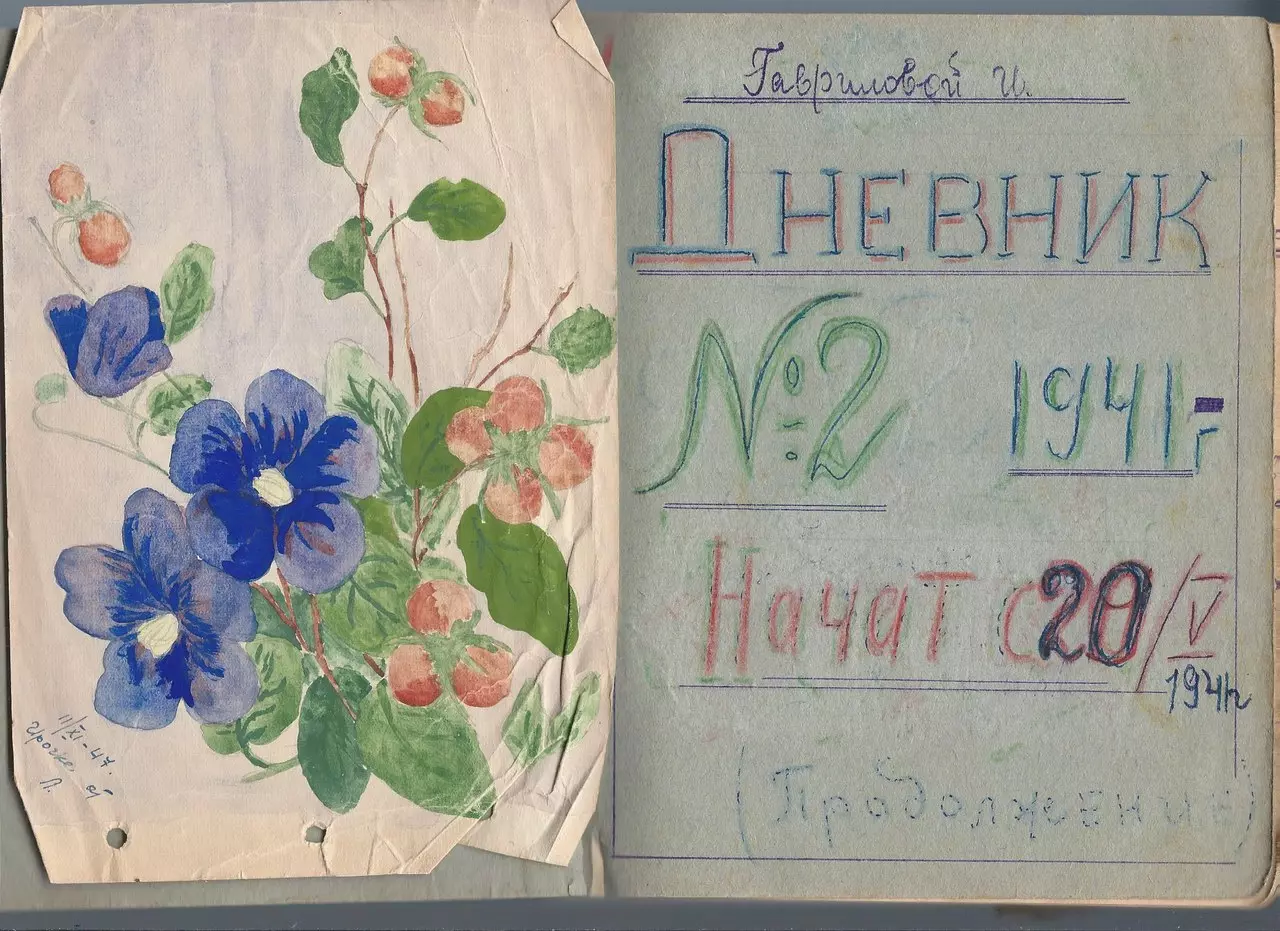 11/XI-47.
Ирочке от
Л.
Гавриловой И.
Дневник
№2 1941 г
Начат с 20/V
1941г
(Продолжение)